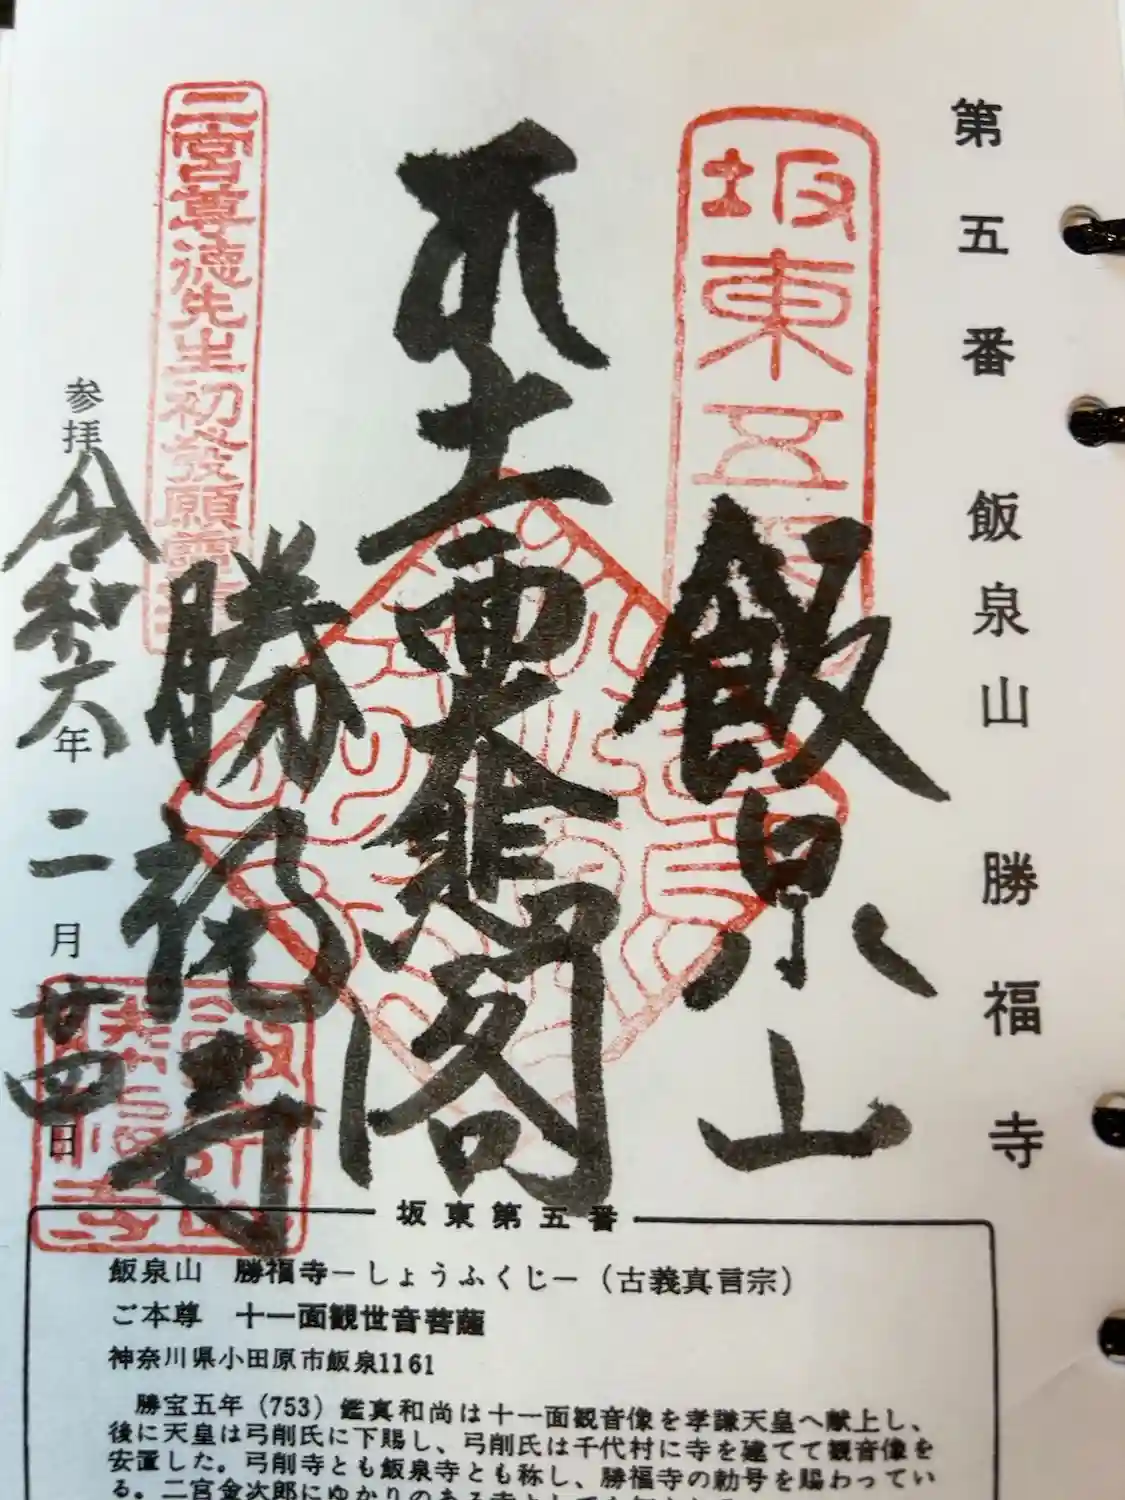 第五番 飯泉山 勝福寺
坂東五
飯泉山
大悲閣
勝福寺
二宮尊徳先生初發願
参拝 令和六年 二月 廿四日
坂東第五番
飯泉山 勝福寺－しょうふくじ－（古義真言宗）
ご本尊 十一面観世音菩薩
神奈川県小田原市飯泉1161
勝宝五年（753）鑑真和尚は十一面観音像を孝謙天皇へ献上し、
後に天皇は弓削氏に下賜し、弓削氏は千代村に寺を建てて観音像を
安置した。弓削寺とも飯泉寺とも称し、勝福寺の勅号を賜わってい
る。二宮金次郎にゆかりのある寺として